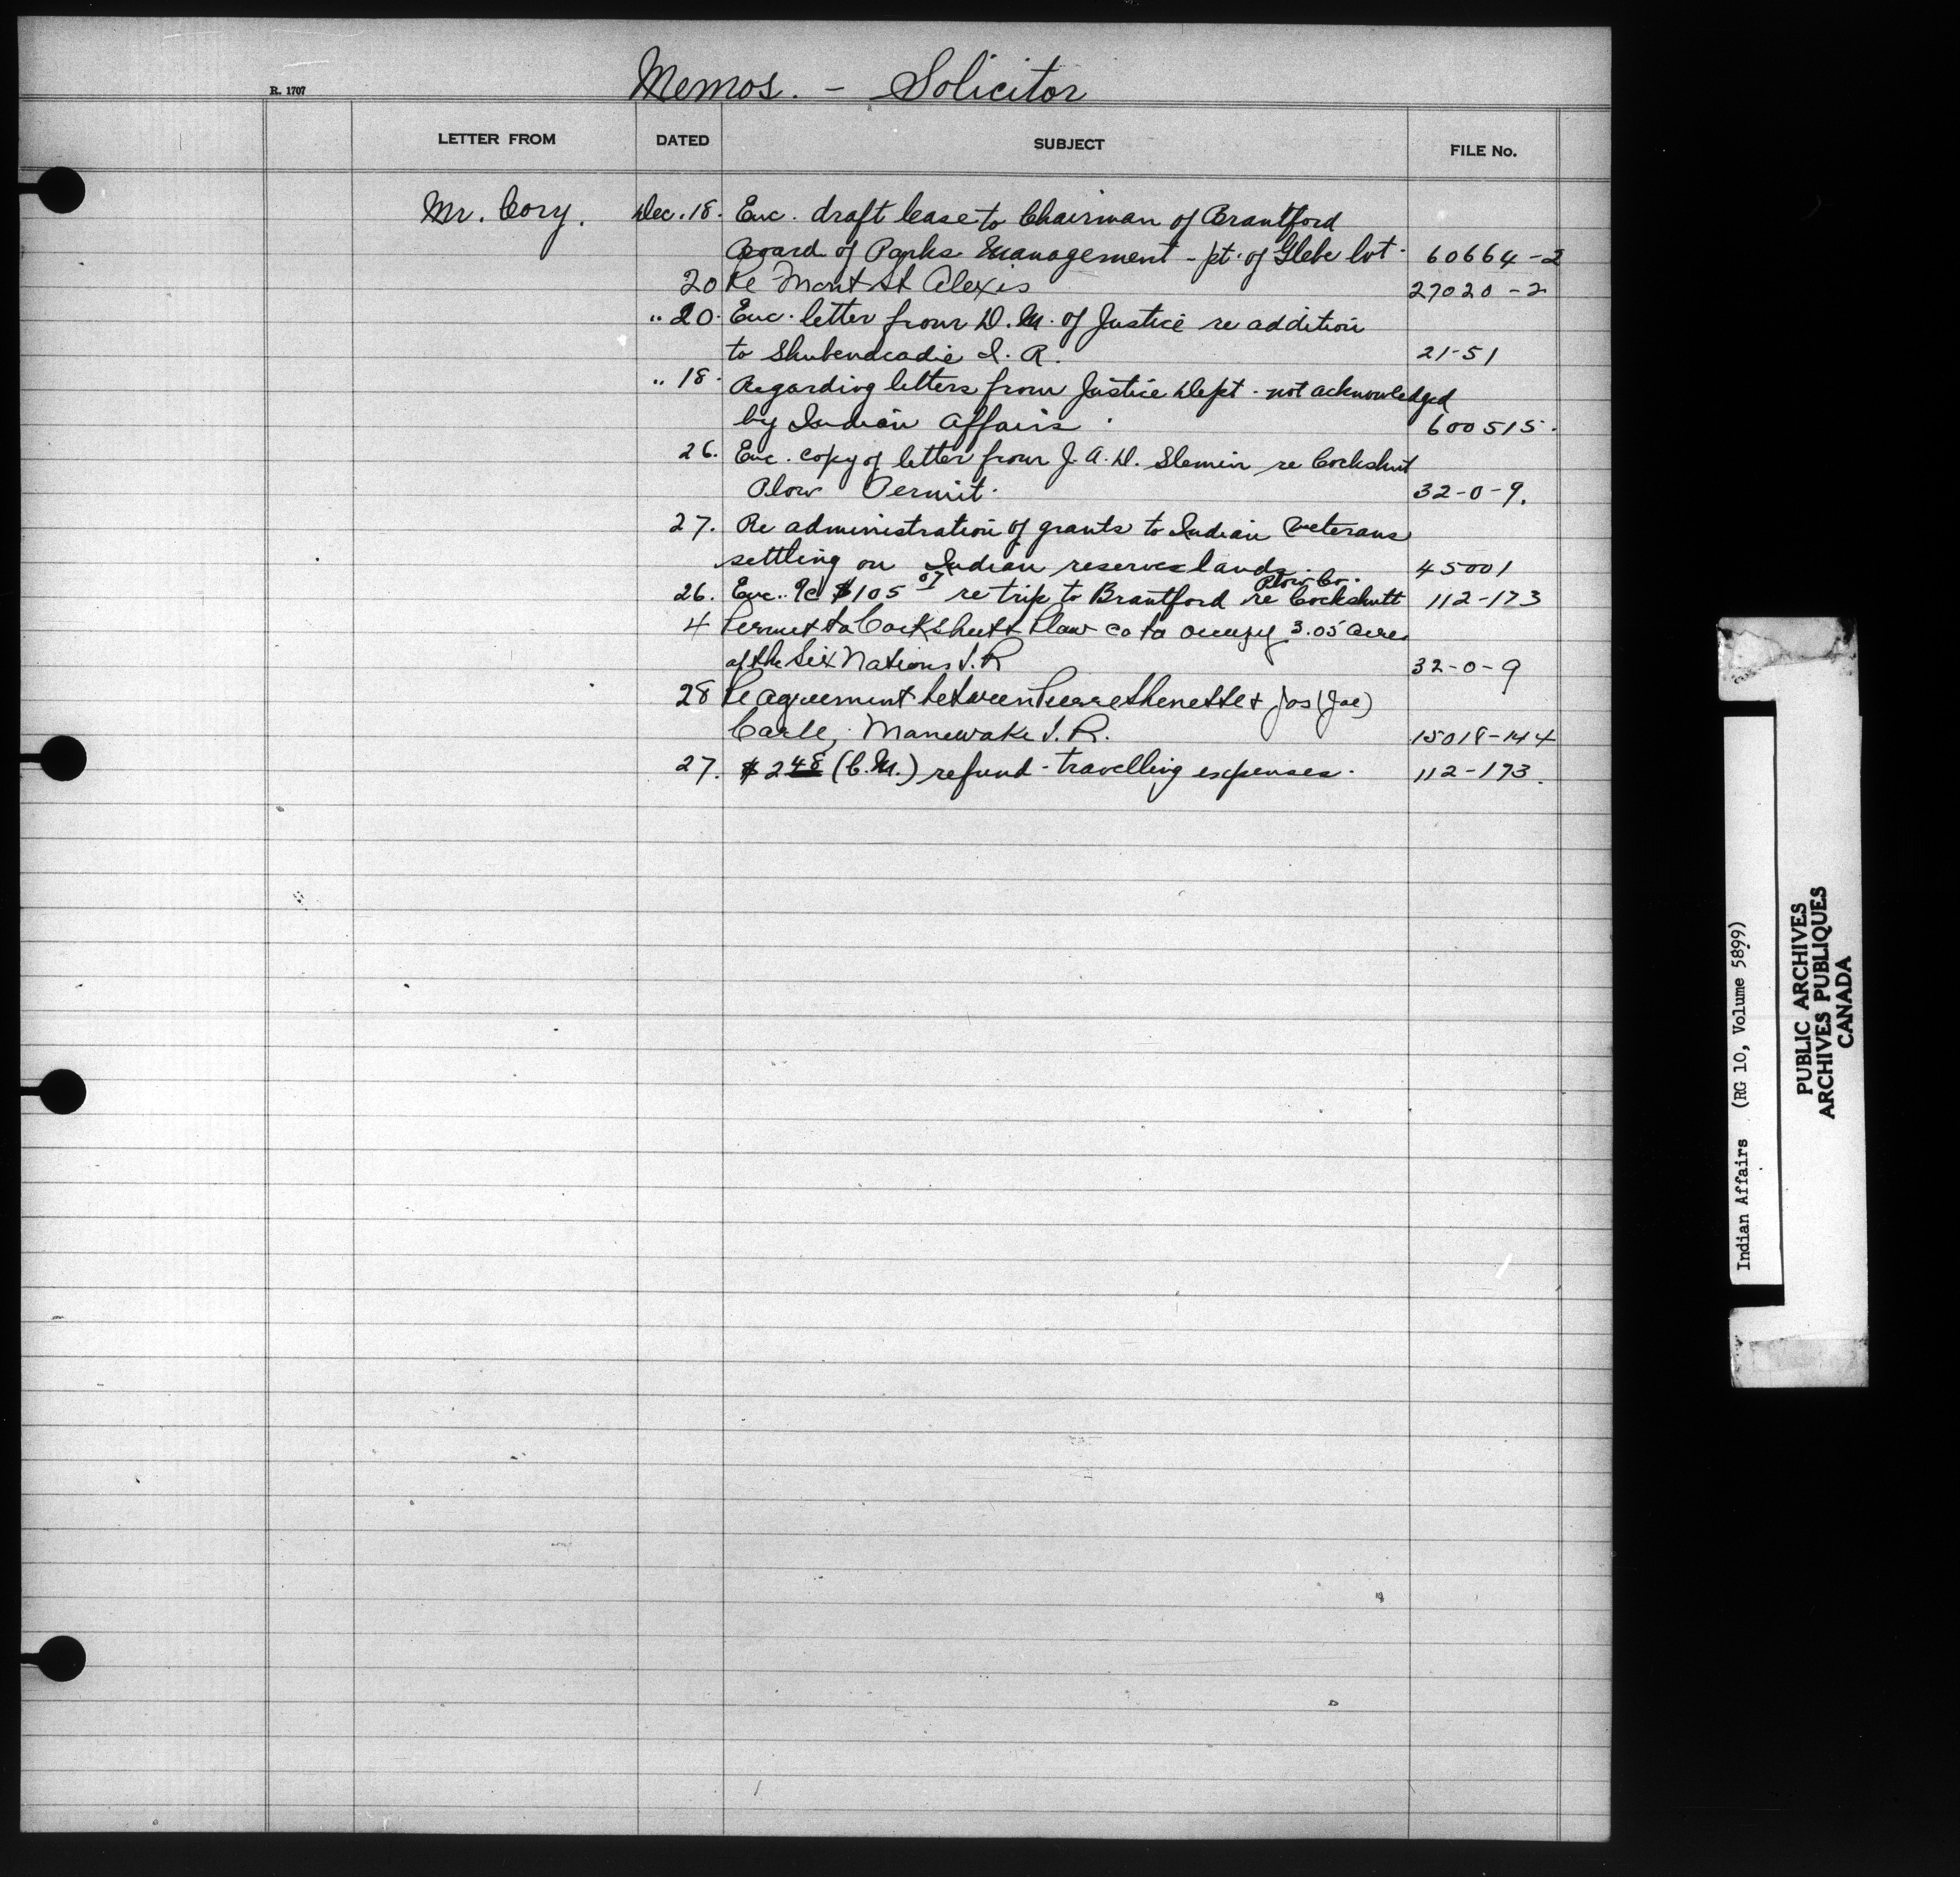 Memos. - Solicitor
R. 1707
LETTER FROM DATED SUBJECT FILE No.
Mr. Cory. Dec. 18. Enc. draft lease to Chairman of Brantford
Board of Parks Management - pt. of Glebe lot. 60664-2
20 Re Mont St Alexis 27020-2
" 20. Enc. letter from D. M. of Justice re addition
to Shubenacadie I. R. 21-51
" 18. Regarding letters from Justice Dept. not acknowledged
by Indian Affairs. 600515.
26. Enc. copy of letter from J. A. D. Slemin re Cockshut
Plow Permit. 32-0-9.
27. Re administration of grants to Indian Veterans
settling on Indian reserves lands. 45001
Plow Co.
26. Enc. $105 07 re trip to Brantford re Cockshutt 112-173
4 Permit to Cockshutt Plow Co to occupy 3.05 acres
of the Six Nations I. R 32-0-9
28 Re agreement between Pierre & Jos (Joe)
Carle, Maniwaki I. R. 15018-144
27. $2 48 (C. M.) refund - travelling expenses. 112-173.
Indian Affairs (RG 10, Volume 5899)
PUBLIC ARCHIVES
ARCHIVES PUBLIQUES
CANADA